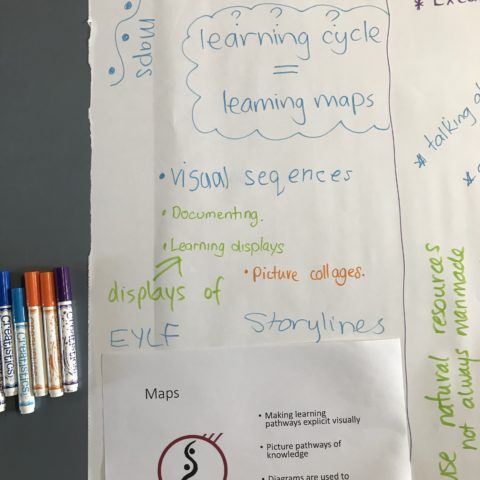 Maps
? ? ?
learning cycle
=
learning maps
• Visual seqences
• Documenting.
• Learning displays
• Picture collages.
displays of
EYLF
Storylines
Maps
• Making learning
pathways explicit visually
• Picture pathways of
knowledge
• Diagrams are used to
* talking
use natural resources
not always manmade